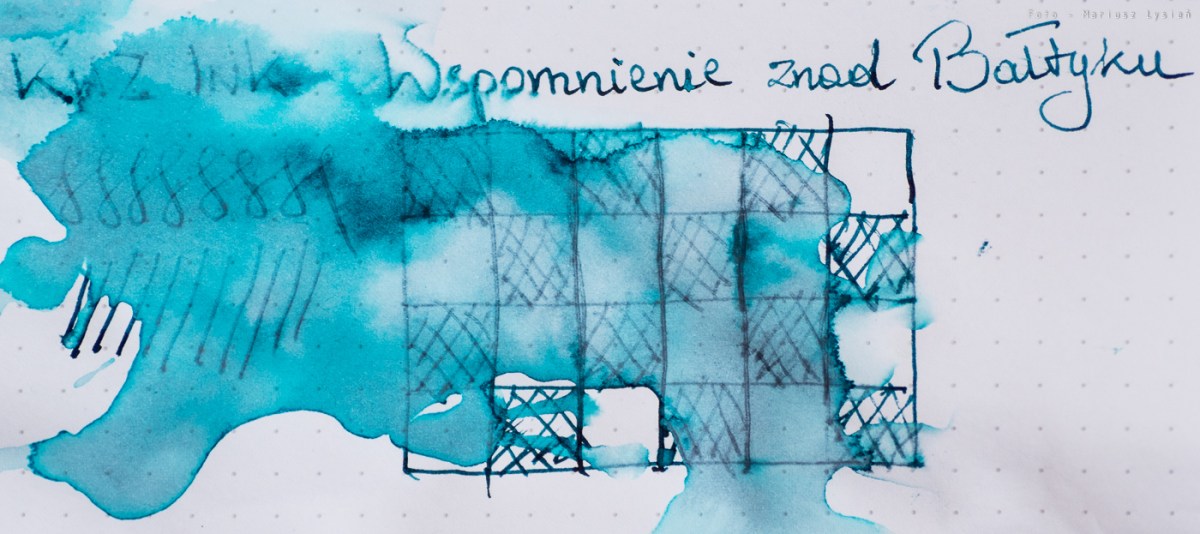 Foto - Mariusz Łysiań
KWZ Ink Wspomnienie znad Bałtyku